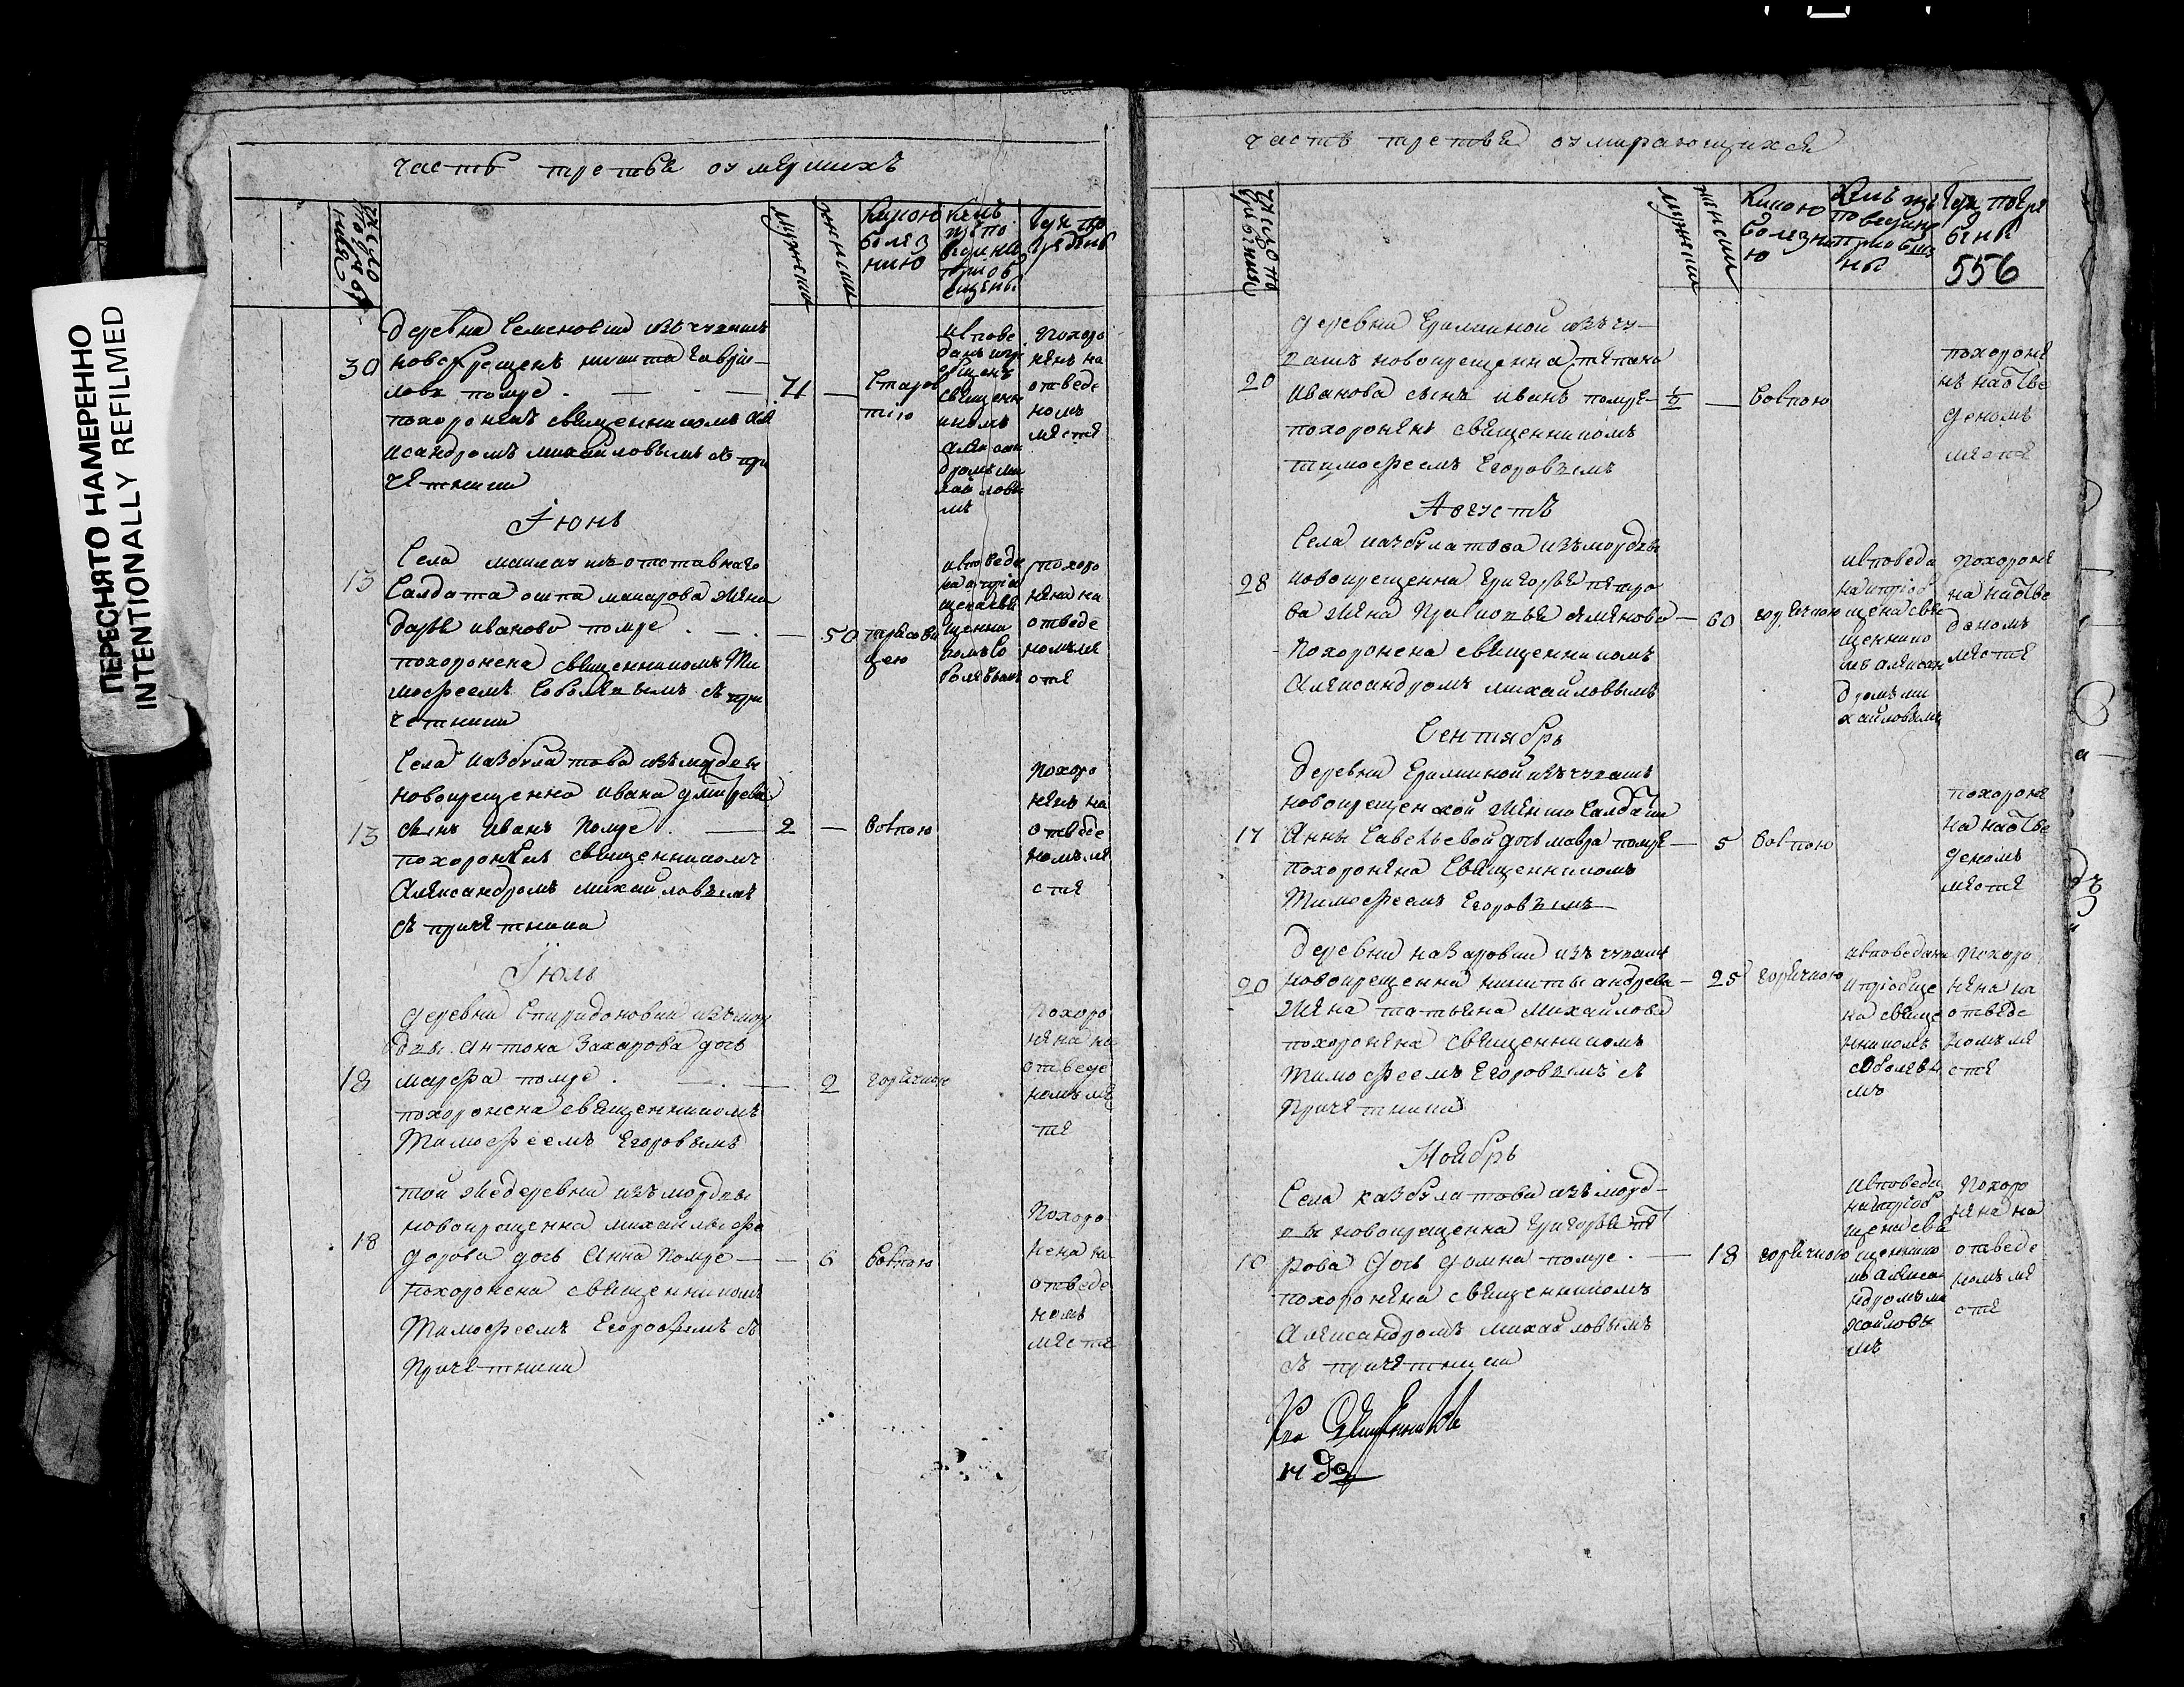 ПЕРЕСНЯТО НАМЕРЕННО
INTENTIONALLY REFILMED
часть третья оумершихъ
число
мужеска
женска
какою
болез
нию
кемъ
испо
ведыны
приоб
щены
где по
гребены
деревни Семеновки изъ чувашъ
30 новокрещенъ никита гаври-
ловъ помре . — . — 71 — старос
тию
похороненъ священникомъ але
исандромъ михайловымъ съ при
четники
исповє
данъ
священ
никомъ
алексан
дромъ ми
хайловы
мъ
похоро
ненъ на
отведе
номъ
месте
Іюнь
Села отставнаго
13 Салдата макарова жена
дарья иванова помре . — . — 50
похоронена священникомъ Ти
мофеемъ Соболевымъ съ при
четники
исповеда
на и приоб
щена свя
щенни
комъ со
болевымъ
похоро
нена на
отведе
номъ ме
сте
Села казбулатова изъ мордвы
новокрещенна ивана дмитрева
13 сынъ иванъ помре . — 2 — воспою
похороненъ священникомъ
Александромъ михайловымъ
съ причетники
похоро
ненъ на
отведе
номъ ме
сте
Іюль
деревни Спиридоновки изъ мор
двы антона Захарова дочь
18 марфа помре . — . — 2 горячкою
похоронена священникомъ
Тимофеемъ Егоровымъ
похоро
нена на
отведе
номъ мес
те
той жедеревни изъ мордвы
новокрещенна михайлы фе
18 дорова дочь Анна помре — — 6 воспою
похоронена священникомъ
Тимофеемъ Егоровымъ съ
причетники
похоро
нена на
отведе
номъ
месте
часть третья оумирающихся
число
мужеска
женска
какою
болезни
ю
кемъ ис
поведаны
приобще
ны
где погре
бены
556
деревни Еремкиной изъ чу-
вашъ новокрещенна степана
20 иванова сынъ иванъ помре 1/2 — воспою
похороненъ священникомъ
тимофеемъ Егоровымъ
похороне
нъ наотве
деномъ
месте
Августъ
Села казбулатова изъмордвы
28 новокрещенна григорья петро
ва жена семенова — 60 горячкою
похоронена священникомъ
Александромъ михайловымъ
исповеда
на и приоб
щена свя
щеннико
мъ алексан
дромъ ми
хайловымъ
похороне
на наотве
деномъ
месте
Сентябрь
деревни Еремкиной изъчувашъ
новокрещенской жёнки Салдатки
17 Анны Савельевой дочь мавра помре — 5 воспою
похоронена священникомъ
Тимофеемъ Егоровымъ
похороне
на наотве
деномъ
месте
деревни наЗаровки изъ чувашъ
20 новокрещенна никиты андрева — 25 горячкою
жена татьяна Михайлова
похоронена священникомъ
Тимофеемъ Егоровымъ съ
причетники
исповедана
и приобще
на свяще
нникомъ
соболевы
мъ
похоро
нена на
отведе
номъ ме
сте
Ноябрь
Села казбулатова изъ морд-
вы новокрещенна григорья пет
10 рова дочь домна помре . — 18 горячкою
похоронена священникомъ
Александромъ михайловымъ
съ причетники
исповеда
на и приоб
щена свя
щеннико
мъ алекса
ндромъ ми
хайловы
мъ
похоро
нена на
отведе
номъ ме
сте